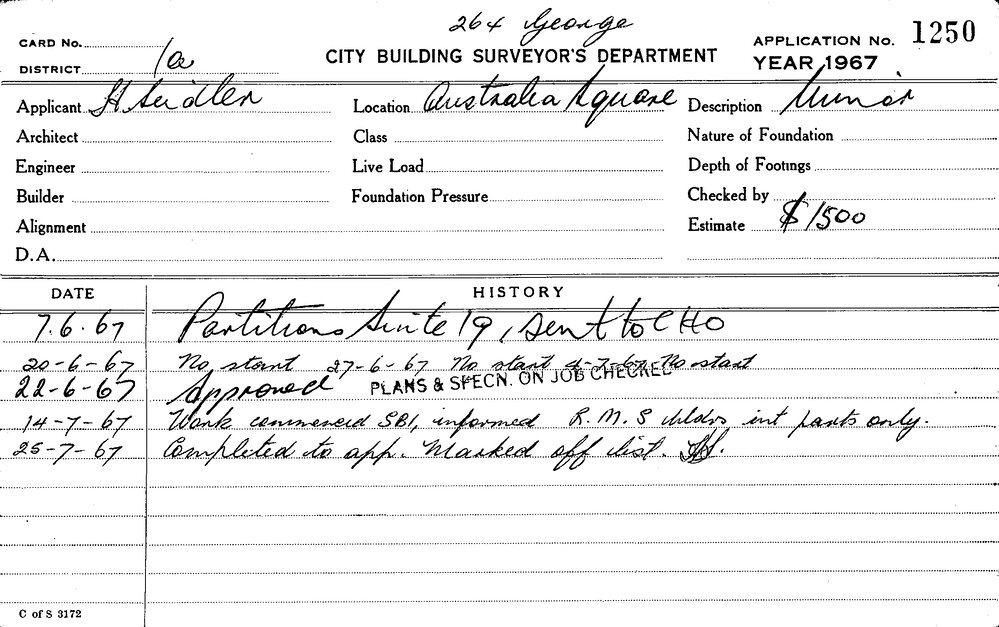 264 George
CARD No.
CITY BUILDING SURVEYOR'S DEPARTMENT
APPLICATION No. 1250
DISTRICT 1a
YEAR 1967
Applicant H Seidler
Location Australia Square
Description Minor
Architect
Class
Nature of Foundation
Engineer
Live Load
Depth of Footings
Builder
Foundation Pressure
Checked by
Alignment
Estimate $1500
D.A.
DATE
HISTORY
7.6.67 Partitions Suite 19, sent to CHO
20-6-67 No start 27-6-67 No start 4-7-67 No start
22-6-67 Approved PLANS & SPECN. ON JOB CHECKED
14-7-67 Work commenced SBI, informed R.M.S bldrs int parts only.
25-7-67 Completed to app. Marked off list.
C of S 3172